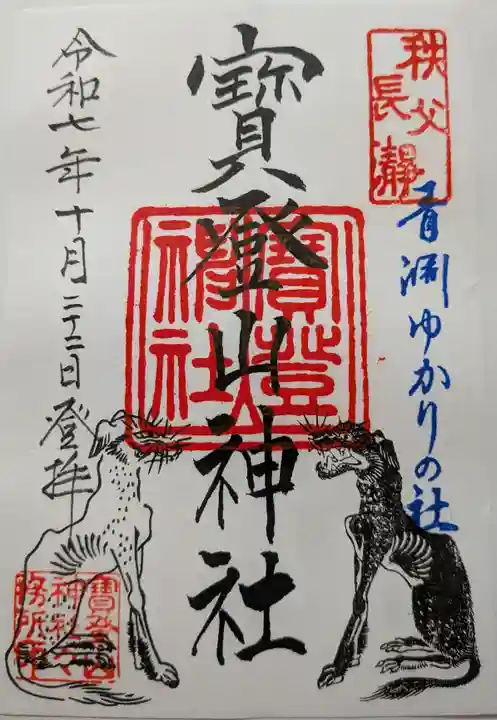 秩父
長瀞
青淵ゆかりの社
寳登山神社
寳登山
神社
令和七年十月二十二日登拝
寳登山
神社
務所印